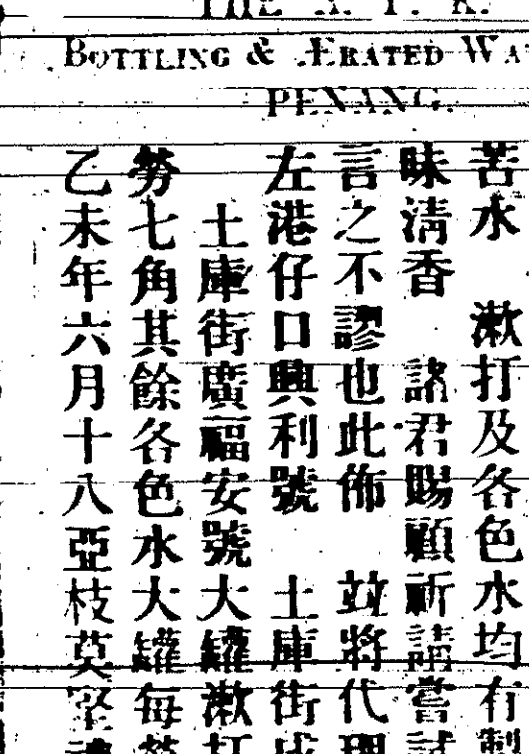 THE A. P. K.
BOTTLING & ÆRATED WA
PENANG.
苦水 漱打及各色水均有製
昧清香 諸君賜顧祈請嘗試
言之不謬也此佈 竝將代理
左港仔口興利號 土庫街
土庫街廣福安號大罐漱打
勞七角其餘各色水大罐每
乙未年六月十八亞枝莫